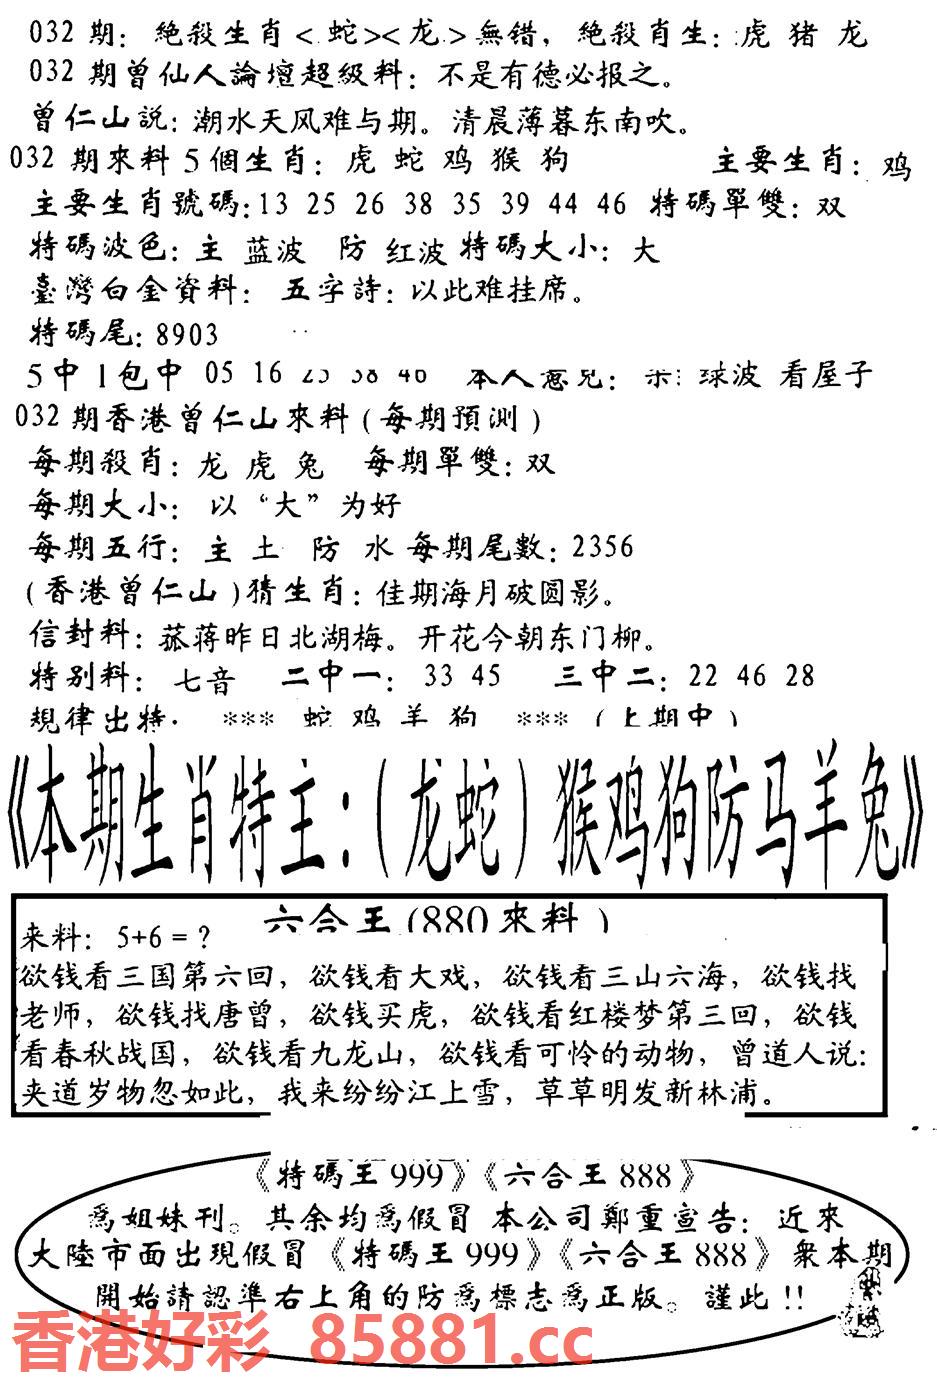 032 期：絶殺生肖<蛇><龙>無错，絶殺肖生：虎 猪 龙
032 期曾仙人論壇超級料：不是有德必报之。
曾仁山説：潮水天风难与期。清晨薄暮东南吹。
032 期來料 5 個生肖：虎 蛇 鸡 猴 狗 主要生肖：鸡
主要生肖號碼：13 25 26 38 35 39 44 46 特碼單雙：双
特碼波色：主 蓝波 防 红波 特碼大小：大
臺灣白金資料： 五字詩：以此难挂席。
特碼尾：8903
5 中 1 包中 05 16 25 38 46 本人意見： 球波 看屋子
032 期香港曾仁山來料（每期預測）
每期殺肖：龙 虎 兔 每期單雙：双
每期大小： 以“大”为好
每期五行：主 土 防 水 每期尾數：2356
（香港曾仁山）猜生肖：佳期海月破圆影。
信封料：菰蒋昨日北湖梅。开花今朝东门柳。
特别料： 七音 二中一： 33 45 三中二：22 46 28
規律出特： *** 蛇 鸡 羊 狗 *** （上期中）
《本期生肖特主：（龙蛇）猴鸡狗防马羊兔》
六合王（880來料）
来料： 5+6 = ？
欲钱看三国第六回，欲钱看大戏，欲钱看三山六海，欲钱找
老师，欲钱找唐曾，欲钱买虎，欲钱看红楼梦第三回，欲钱
看春秋战国，欲钱看九龙山，欲钱看可怜的动物，曾道人说：
夹道岁物忽如此，我来纷纷江上雪，草草明发新林浦。
《特碼王 999》《六合王 888》
爲姐妹刊。其余均爲假冒 本公司鄭重宣告： 近來
大陸市面出現假冒《特碼王 999》《六合王 888》衆本期
開始請認準右上角的防爲標志爲正版。謹此 !!
香港好彩 85881.cc